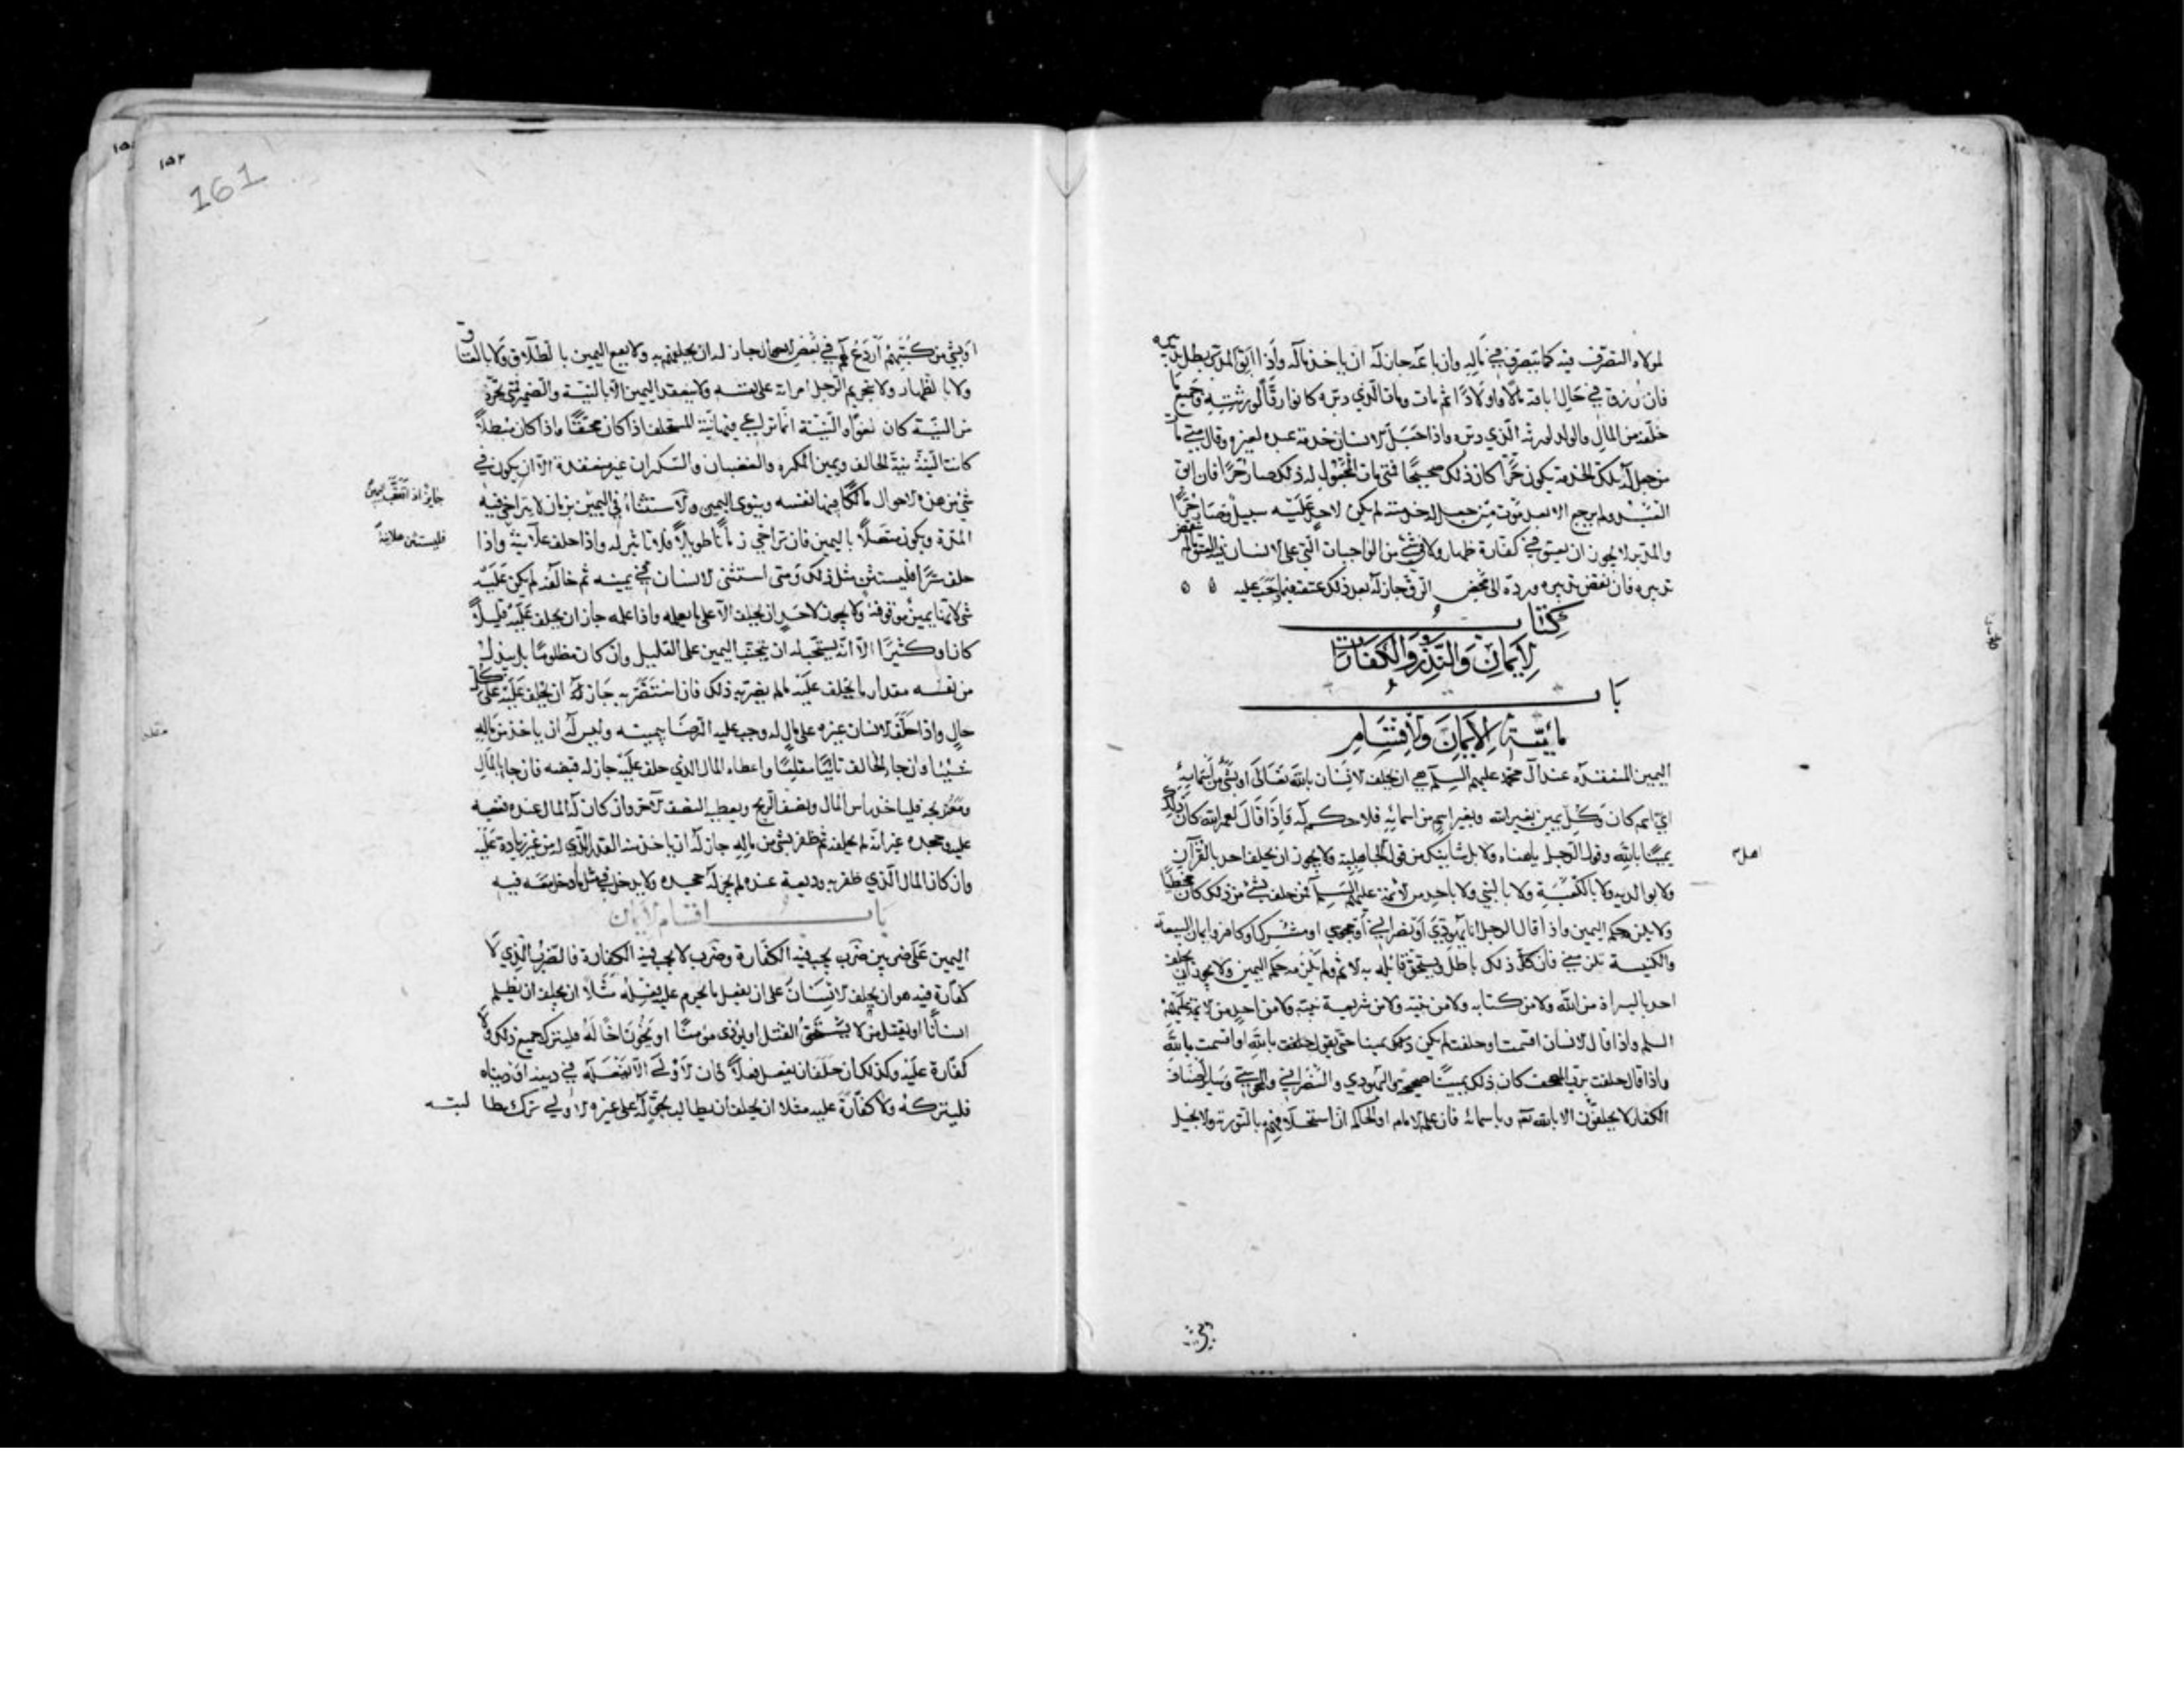 لمولاه التصرّف فيه كما يتصرف في ماله وان باعه جاز له ان ياخذ ماله واذا ابق المدبّر بطل تدبيره
فان رزق في حال اباقه مالا واولادا ثم مات ومات الّذي دبّره كانوا رقّا لورثته وجميع ما
خلّفه من المال والولد لورثه الّذي دبّره واذا جعل الانسان خدمة عبده لغيره وقال متى مات
من جعل له تلك الخدمة يكون حرّا كان ذلك صحيحا فمتى مات المجعول له ذلك صار حرّا فان ابق
العبد ولم يرجع الا بعد موت من جعل له خدمته لم يكن لاحد عليه سبيل وصار حرّا
والمدبّر لا يجوز ان يعتق في كفّارة ظهار ولا في شئ من الواجبات الّتي على الانسان فيه العتق مالم ينقض
تدبيره فان نقض تدبيره وردّه الى محض الرّق جاز له بعد ذلك عتقه فيما وجب عليه
كتاب
الايمان والنذور والكفارات
باب
مائيّة الايمان والاقسام
اليمين المنعقدة عند آل محمّد عليهم السلم هي ان يحلف الانسان بالله تعالى او بشئ من اسمائه
ايّ اسم كان وكل يمين بغير الله وبغير اسم من اسمائه فلا حكم له فاذا قال لعمر الله كان ذلك
يمينا بالله وقول الرّجل ياهناه ولا بل شانيك من قول الجاهلية ولا يجوز ان يحلف احد بالقرآن
اهل
ولا بوالديه ولا بالكعبة ولا بالنبي ولا باحد من الائمة عليهم السلم فمن حلف بشئ من ذلك كان مخطئا
ولا يلزمه حكم اليمين واذا قال الرجل انا يهودي او نصراني او مجوسي او مشرك او كافر وايمان البيعة
والكنيسة تلزمني فان كلّ ذلك باطل ويستحق قائله به الاثم ولم يلزمه حكم اليمين ولا يجوز ان يحلف
احد بالبراءة من الله ولا من كتابه ولا من نبيّه ولا من شريعة نبيّه ولا من احد من الائمة عليهم
السلم واذا قال الانسان اقسمت او حلفت لم يكن ذلك يمينا حتى يقول حلفت بالله او اقسمت بالله
واذا قال حلفت بربّ المصحف كان ذلك يمينا صحيحة واليهودي والنّصراني والمجوسي وساير اصناف
الكفار لا يحلفون الا بالله تع وباسمائه فان علم الامام او الحاكم ان استحلافهم بالتورية والانجيل
او بشئ من كتبهم اردع لهم في بعض الاحوال جاز له ان يحلفهم به ولا يقع اليمين بالطلاق ولا بالعتاق
ولا بالظهار ولا بتحريم الرّجل امراته على نفسه ولا ينعقد اليمين الا بالنيّة والضمير فمتى تجرّد
من النيّة كان لغوا والنيّة انّما تراعي فيها نيّة المستحلف اذا كان محقّا واذا كان مبطلا
كانت النيّة نيّة الحالف ويمين المكره والغضبان والسّكران غير منعقدة الّا ان يكون في
شئ من هذه الاحوال مالكا فيها نفسه وينوي اليمين والاستثناء في اليمين بزمان لا يتراخى فيه
جايز اذا تعقّب اليمين
المدّة ويكون متّصلا باليمين فان تراخى زمانا طويلا فلا تاثير له واذا حلف علانية واذا
فليستثن علانية
حلف سرّا فليستثن مثل ذلك ومتى استثنى الانسان في يمينه ثم خالفه لم يكن عليه
شئ لانّها يمين موقوفة ولا يجوز لاحد ان يحلف الا على ما يعلمه واذا علمه جاز ان يحلف عليه قليلا
كان او كثيرا الّا انّه يستحب له ان يتجنّب اليمين على القليل وان كان مظلوما بل يبذل
من نفسه مقدار ما يحلف عليه مالم يضرّ به ذلك فان استضرّ به جاز له ان يحلف عليه على كل
حال واذا حلّف الانسان غيره على مال له وجب عليه الرّضا بيمينه وليس له ان ياخذ من ماله
شيئا وان جاء الحالف تائبا مقلعا واعطاه المال الذي حلف عليه جاز له قبضه فان جاء بالمال
ومعه ربحه فلياخذ راس المال ونصف الرّبح ويعطيه النصف الاخر وان كان له المال عنده فغصبه
عليه وجحده غير انّه لم يحلفه ثم ظفر بشئ من ماله جاز له ان ياخذ منه القدر الّذي له من غير زيادة عليه
وان كان المال الّذي ظفر به وديعة عنده لم يجز له جحده ولا يدخل في مثل ما دخل معه فيه
باب اقسام الايمان
اليمين على ضربين ضرب يجب فيه الكفّارة وضرب لا يجب فيه الكفّارة فالضّرب الّذي لا
كفارة فيه هو ان يحلف الانسان على ان يفعل ما يحرم عليه فعله مثلا ان يحلف ان يظلم
انسانا او يقتل من لا يستحق القتل او يؤذى مومنا او يخون اخا له فليترك جميع ذلك ولا
كفّارة عليه وكذلك ان حلف ان يفعل فعلا كان الاولى الّا يفعله في دينه او دنياه
فليتركه ولا كفّارة عليه مثلا ان يحلف ان يطالب بحقّ له على غيره الاولى ترك مطالبته
161